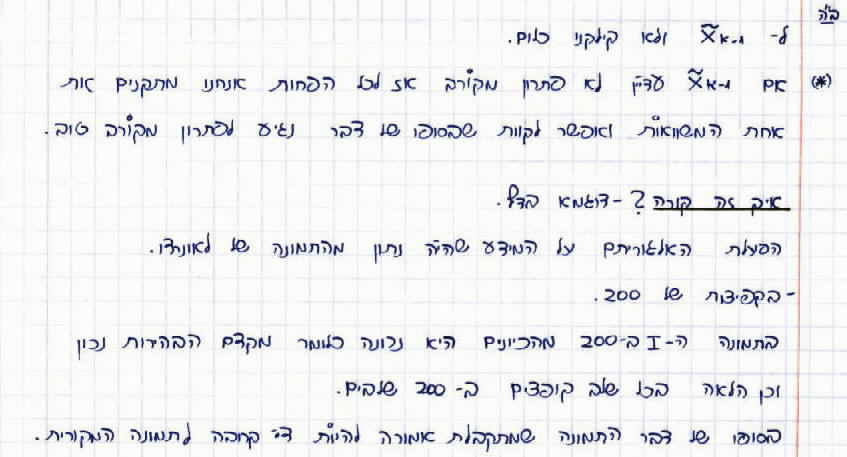 ב"ה
ל- X̃ₖ₋₁ ולא קילקנו כלום.
(*) אם X̃ₖ₋₁ עדיין לא פתרון מקורב אז לכל הפחות אנחנו מתקנים את
אחת המשוואות ואפשר לקוות שבסופו של דבר נגיע לפתרון מקורב טוב.
איך זה קורה? - דוגמא בדף.
הפעלת האלגוריתם על המידע שהיה נתון מהתמונה של לאונרדו.
- בקפיצות של 200.
בתמונה ה-I ב-200 מהכיוונים היא נכונה כלומר מקדם הבהירות נכון
וכן הלאה בכל שלב קופצים ב- 200 שלבים.
בסופו של דבר התמונה שמתקבלת אמורה להיות די קרובה לתמונה המקורית.